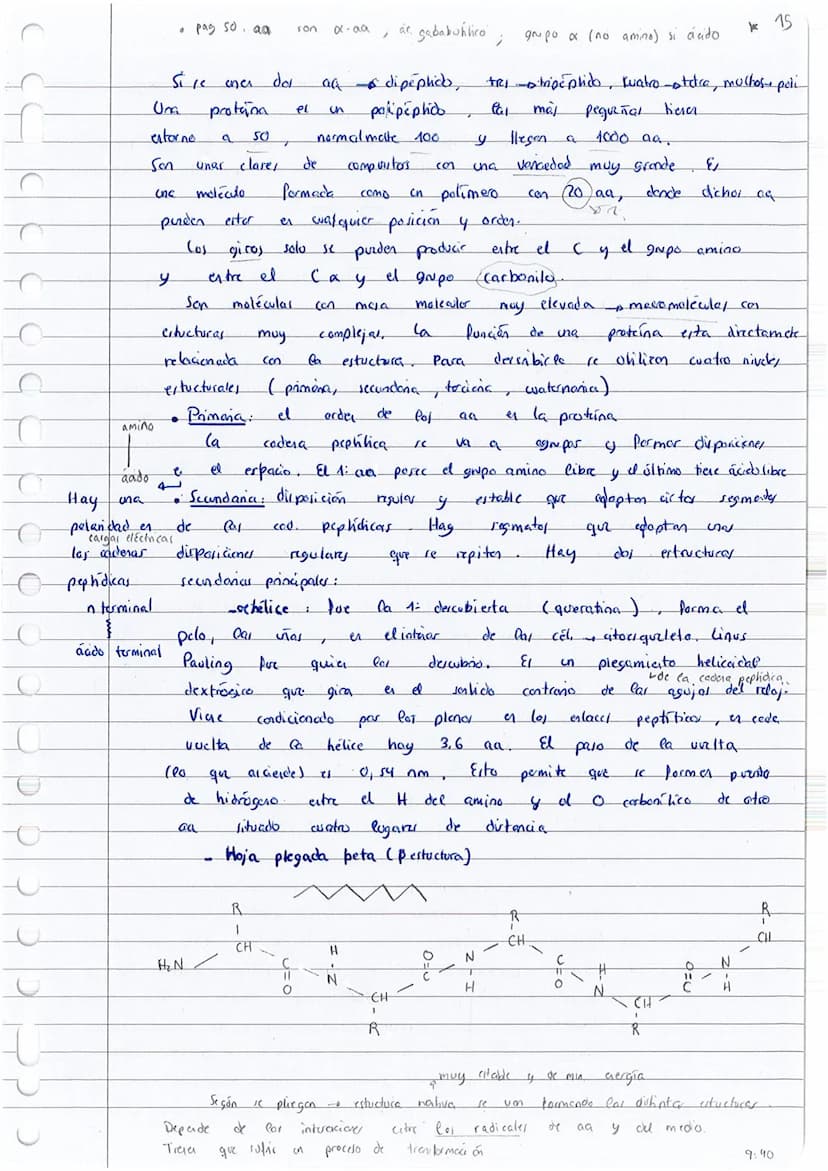 • pag 50. aa son α-aa, ác. gababutílico; grupo α (no amino) si ácido * 15
Si se unen dos aa → dipéptido, tres → tripéptido, cuatro → tetra, muchos → poli
Una proteína es un polipéptido. Las más pequeñas tienen
entorno a 50, normalmente 100 y llegan a 1000 aa.
Son unas clases de compuestos con una variedad muy grande. Es
una molécula formada como un polímero con 20 aa, donde dichos aa
pueden estar en cualquier posición y orden.
Los giros solo se pueden producir entre el C y el grupo amino
y entre el Cα y el grupo carbonilo.
Son moléculas con masa molecular muy elevada → macromoléculas con
estucturas muy complejas. La función de una proteína esta directamete
relacionada con la estuctura. Para describirla se utilizan cuatro niveles
estucturales (primaria, secundaria, terciaria, cuaternaria)
• Primaria: el orden de los aa en la proteína
La cadena peptítica se va a agrupar y formar disposiciones
e el espacio. El 1: aa posee el grupo amino libre y el último tiene ácido libre
amino
ácido
• Secundaria: disposición regular y estable que adoptan ciertos segmentos
de las cad. peptídicas. Hay segmatos que adoptan unas
disposiciones regulares que se repiten. Hay dos estructuras
secundarias principales:
Hay una
polaridad en
cargas eléctricas
las cadenas
peptídicas
n terminal
ácido terminal
- α hélice: fue la 1: descubierta (queratina), forma el
pelo, las uñas, en el interior de las cél. → citoesqueleto. Linus
Pauling fue quien las descubrió. Es un plegamiento helicoidal
→ de la cadena peptídica
dextrógiro que gira en el sentido contrario de las agujas del reloj.
Viene condicionado por los planos en los enlaces peptítico, en cada
vuelta de la hélice hay 3,6 aa. El paso de la vuelta
(lo que asciende) es 0,54 nm. Esto permite que se formen puente
de hidrógeno entre el H del amino y el O carbonílico de otro
aa situado cuatro lugares de distancia
- Hoja plegada beta (β estuctura)
R R R
CH H O N CH C H O N CH
H₂N C N C H O N C H
O CH CH
R R
muy estable y de min energía
Según se pliegan → estuctura nativa se van formando las distintas estucturas.
Depende de las interaciones entre los radicales de aa y del medio.
Tienen que sufrir un proceso de transformación
9:40